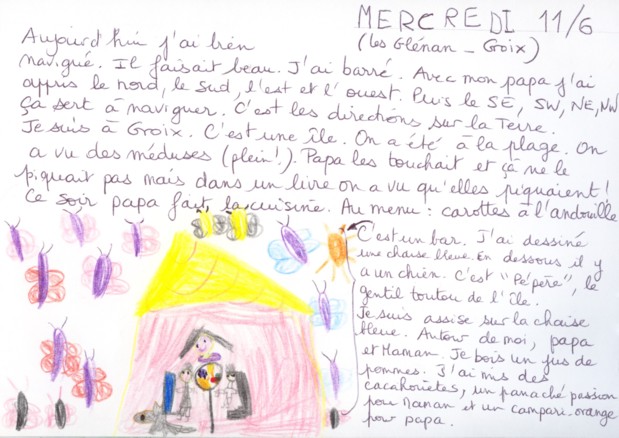 MERCREDI 11/6
(les Glénan - Groix)
Aujourd'hui j'ai bien
navigué. Il faisait beau. J'ai barré. Avec mon papa j'ai
appris le nord, le sud, l'est et l'ouest. Puis le SE, SW, NE, NW
ça sert à naviguer. C'est les directions sur la Terre.
Je suis à Groix. C'est une île. On a été à la plage. On
a vu des méduses (plein!). Papa les touchait et çà ne le
piquait pas mais dans un livre on a vu qu'elles piquaient!
Ce soir papa fait la cuisine. Au menu : carottes à l'andouille
C'est un bar. J'ai dessiné
une chaise bleue. En dessous il y
a un chien. C'est "Pépère", le
gentil toutou de l'île.
Je suis assise sur la chaise
bleue. Autour de moi, papa
et Maman. Je bois un jus de
pommes. J'ai mis des
cacahouètes, un panaché passion
pour Maman et un campari orange
pour papa.